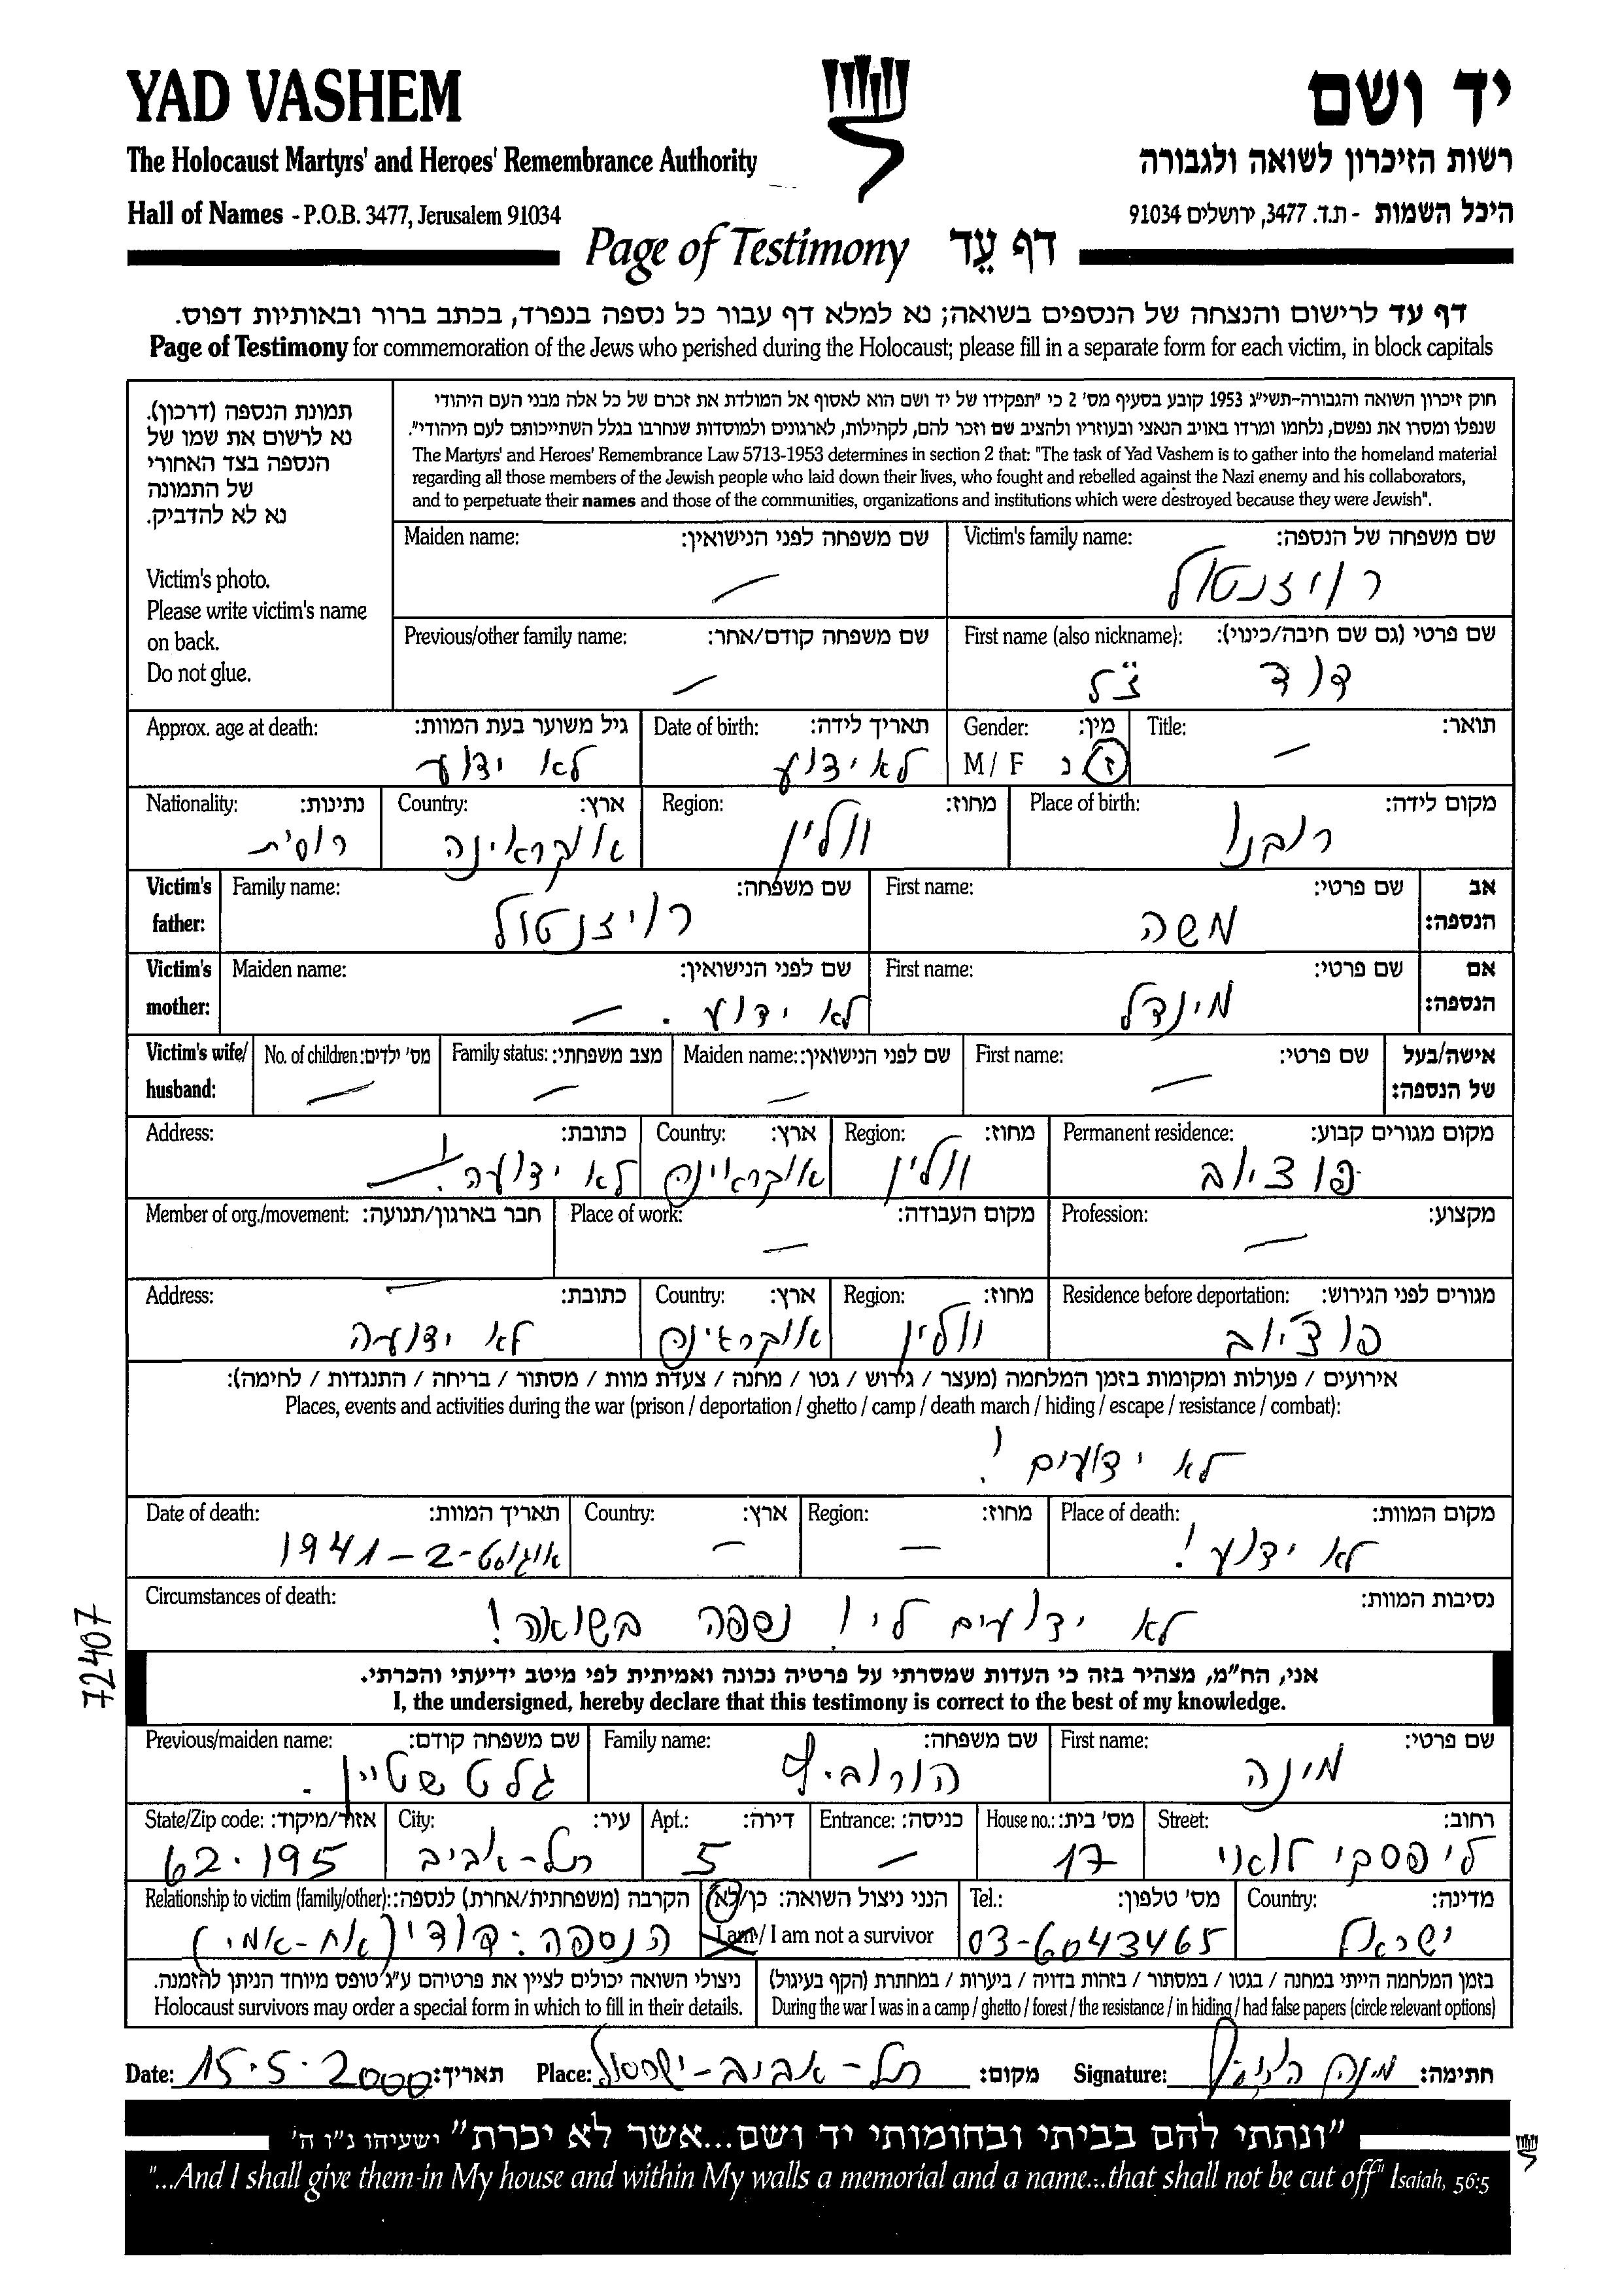 YAD VASHEM
יד ושם
The Holocaust Martyrs' and Heroes' Remembrance Authority
רשות הזיכרון לשואה ולגבורה
Hall of Names - P.O.B. 3477, Jerusalem 91034
היכל השמות - ת.ד. 3477, ירושלים 91034
Page of Testimony דף עֵד
דף עד לרישום והנצחה של הנספים בשואה; נא למלא דף עבור כל נספה בנפרד, בכתב ברור ובאותיות דפוס.
Page of Testimony for commemoration of the Jews who perished during the Holocaust; please fill in a separate form for each victim, in block capitals
תמונת הנספה (דרכון).
נא לרשום את שמו של
הנספה בצד האחורי
של התמונה
נא לא להדביק.
Victim's photo.
Please write victim's name
on back.
Do not glue.
חוק זיכרון השואה והגבורה-תשי"ג 1953 קובע בסעיף מס' 2 כי "תפקידו של יד ושם הוא לאסוף אל המולדת את זכרם של כל אלה מבני העם היהודי
שנפלו ומסרו את נפשם, נלחמו ומרדו באויב הנאצי ובעוזריו ולהציב שם וזכר להם, לקהילות, לארגונים ולמוסדות שנחרבו בגלל השתייכותם לעם היהודי".
The Martyrs' and Heroes' Remembrance Law 5713-1953 determines in section 2 that: "The task of Yad Vashem is to gather into the homeland material
regarding all those members of the Jewish people who laid down their lives, who fought and rebelled against the Nazi enemy and his collaborators,
and to perpetuate their names and those of the communities, organizations and institutions which were destroyed because they were Jewish".
Victim's family name: שם משפחה של הנספה:
רויזנטול
Maiden name: שם משפחה לפני הנישואין:
—
First name (also nickname): שם פרטי (גם שם חיבה/כינוי):
דוד ז"ל
Previous/other family name: שם משפחה קודם/אחר:
—
Title: תואר:
—
Gender: מין:
M / F ז נ
Date of birth: תאריך לידה:
לא ידוע
Approx. age at death: גיל משוער בעת המוות:
לא ידוע
Place of birth: מקום לידה:
רובנו
Region: מחוז:
וולין
Country: ארץ:
אוקראינה
Nationality: נתינות:
רוסית
Victim's father: אב הנספה:
First name: שם פרטי:
משה
Family name: שם משפחה:
רויזנטול
Victim's mother: אם הנספה:
First name: שם פרטי:
מינדל
Maiden name: שם לפני הנישואין:
לא ידוע. —
Victim's wife/ husband: אישה/בעל של הנספה:
First name: שם פרטי:
—
Maiden name: שם לפני הנישואין:
—
Family status: מצב משפחתי:
—
No. of children: מס' ילדים:
—
Permanent residence: מקום מגורים קבוע:
פוציוב
Region: מחוז:
וולין
Country: ארץ:
אוקראינה
Address: כתובת:
לא ידועה! —
Profession: מקצוע:
—
Place of work: מקום העבודה:
—
Member of org./movement: חבר בארגון/תנועה:
—
Residence before deportation: מגורים לפני הגירוש:
פוצ'יוב
Region: מחוז:
וולין
Country: ארץ:
אוקראינה
Address: כתובת:
לא ידועה
אירועים / פעולות ומקומות בזמן המלחמה (מעצר / גירוש / גטו / מחנה / צעדת מוות / מסתור / בריחה / התנגדות / לחימה):
Places, events and activities during the war (prison / deportation / ghetto / camp / death march / hiding / escape / resistance / combat):
לא ידועים!
Place of death: מקום המוות:
לא ידוע!
Region: מחוז:
—
Country: ארץ:
—
Date of death: תאריך המוות:
אוגוסט-2-1941
Circumstances of death: נסיבות המוות:
לא ידועים לי! נספה בשואה!
72407
אני, הח"מ, מצהיר בזה כי העדות שמסרתי על פרטיה נכונה ואמיתית לפי מיטב ידיעתי והכרתי.
I, the undersigned, hereby declare that this testimony is correct to the best of my knowledge.
First name: שם פרטי:
מינה
Family name: שם משפחה:
הורוביץ
Previous/maiden name: שם משפחה קודם:
גלטשטיין.
Street: רחוב:
ליפסקי לואי
House no.: מס' בית:
17
Entrance: כניסה:
—
Apt.: דירה:
5
City: עיר:
תל-אביב
State/Zip code: אזור/מיקוד:
62.195
Country: מדינה:
ישראל
Tel.: מס' טלפון:
03-6043465
הנני ניצול השואה: כן/לא
I am / I am not a survivor
Relationship to victim (family/other): הקרבה (משפחתית/אחרת) לנספה:
הנספה: דודי (אח-אמי)
בזמן המלחמה הייתי במחנה / בגטו / במסתור / בזהות בדויה / ביערות / במחתרת (הקף בעיגול)
During the war I was in a camp / ghetto / forest / the resistance / in hiding / had false papers (circle relevant options)
ניצולי השואה יכולים לציין את פרטיהם ע"ג טופס מיוחד הניתן להזמנה.
Holocaust survivors may order a special form in which to fill in their details.
Date: 15.5.2000 תאריך: Place: תל-אביב-ישראל מקום: Signature: מינה הורוביץ חתימה:
"ונתתי להם בביתי ובחומותי יד ושם...אשר לא יכרת" ישעיהו נ"ו ה'
"...And I shall give them in My house and within My walls a memorial and a name...that shall not be cut off" Isaiah, 56:5